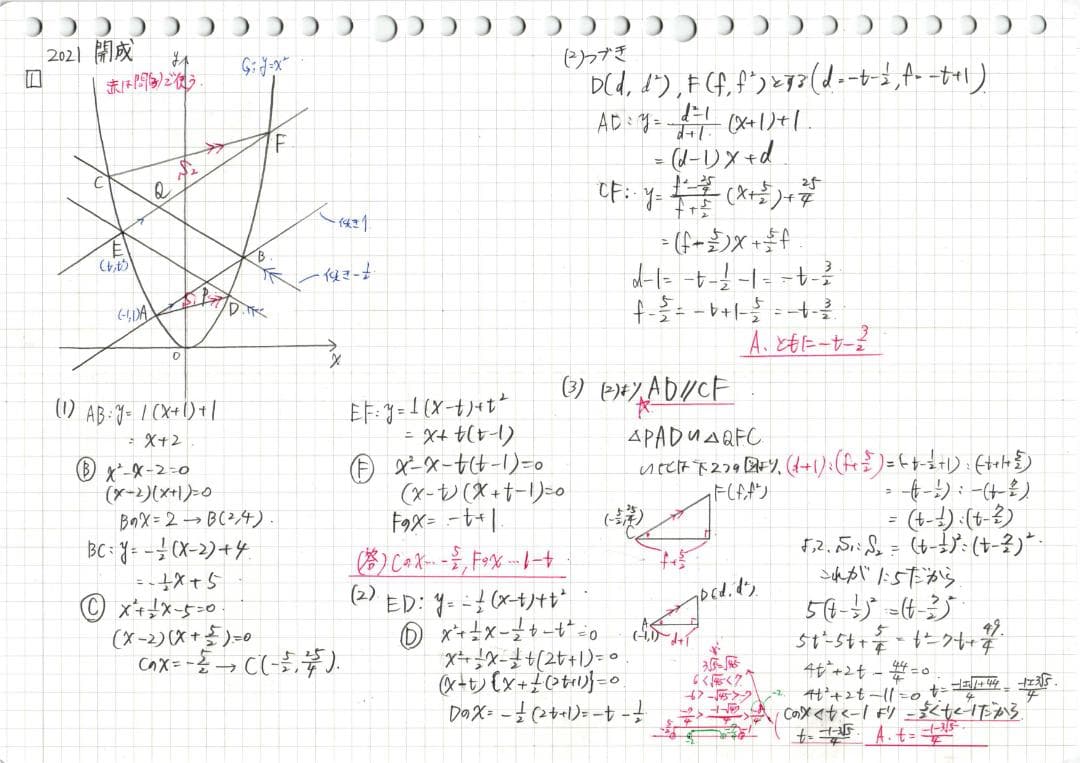 2021 開成
1
赤は問(3)で使う
y
G: y=x²
F
C
S₂
Q
傾き1
E
(t,t²)
B
傾き-1/2
S₁
P
(-1,1)A
D
O
x
(1) AB: y=1(x+1)+1
= x+2
Ⓑ x²-x-2=0
(x-2)(x+1)=0
Bのx=2→B(2,4).
BC: y=-1/2(x-2)+4
=-1/2x+5
Ⓒ x²+1/2x-5=0
(x-2)(x+5/2)=0
Cのx=-5/2→C(-5/2,25/4).
EF: y=1(x-t)+t²
= x+t(t-1)
Ⓕ x²-x-t(t-1)=0
(x-t)(x+t-1)=0
Fのx=-t+1
(答) Cのx…-5/2, Fのx…1-t
(2) ED: y=-1/2(x-t)+t²
Ⓓ x²+1/2x-1/2t-t²=0
x²+1/2x-1/2t(2t+1)=0
(x-t){x+1/2(2t+1)}=0
Dのx=-1/2(2t+1)=-t-1/2
(2)つづき
D(d, d²), F(f, f²)とする(d=-t-1/2, f=-t+1)
AD: y=d²-1/d+1(x+1)+1.
=(d-1)x+d
CF: y=f²-25/4/f+5/2(x+5/2)+25/4
=(f-5/2)x+5/2f
d-1=-t-1/2-1=-t-3/2
f-5/2=-t+1-5/2=-t-3/2
A. ともに-t-3/2
(3) (2)より AD//CF
△PAD∽△QFC
(d+1):(f+5/2)=(-t-1/2+1):(-t+1+5/2)
=-(t-1/2):-(t-7/2)
=(t-1/2):(t-7/2)
よって, S₁:S₂=(t-1/2)²:(t-7/2)².
これが1:5だから
5(t-1/2)²=(t-7/2)²
5t²-5t+5/4=t²-7t+49/4
4t²+2t-44/4=0
4t²+2t-11=0 t=-1±√1+44/4=-1±3√5/4
Cのx<t<-1より -5/2<t<-1だから
t=-1-3√5/4
A. t=-1-3√5/4
F(f,f²)
(-5/2,25/4)
C
f+5/2
D(d,d²)
A
(-1,1)
d+1
3√5=√45
6<√45<7
-6>-√45>-7